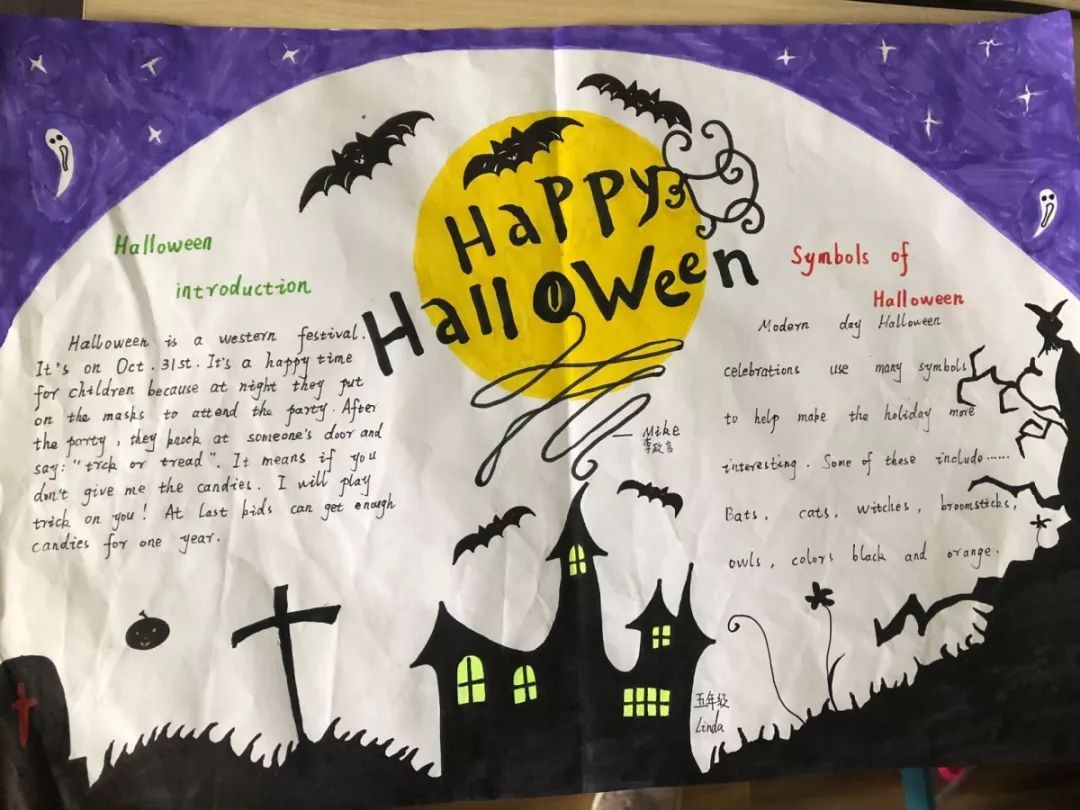 Happy
Halloween
— Mike
李政言
Halloween
introduction
Halloween is a western festival.
It's on Oct. 31st. It's a happy time
for children because at night they put
on the masks to attend the party. After
the party, they knock at someone's door and
say: "trck or tread". It means if you
don't give me the candies. I will play
trick on you! At last kids can get enough
candies for one year.
Symbols of
Halloween
Modern day Halloween
celebrations use many symbols
to help make the holiday more
interesting. Some of these include......
Bats, cats, witches, broomsticks,
owls, colors black and orange.
五年级
Linda